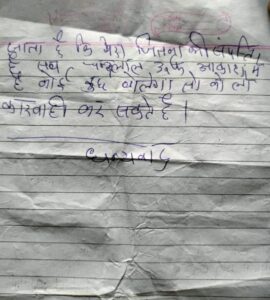 जाता है कि मेरा जितना भी संपत्ति
है सब उर्फ आकाश में
है कोई कुछ बोलेगा तो
कारवाही कर सकते है।
धन्यवाद